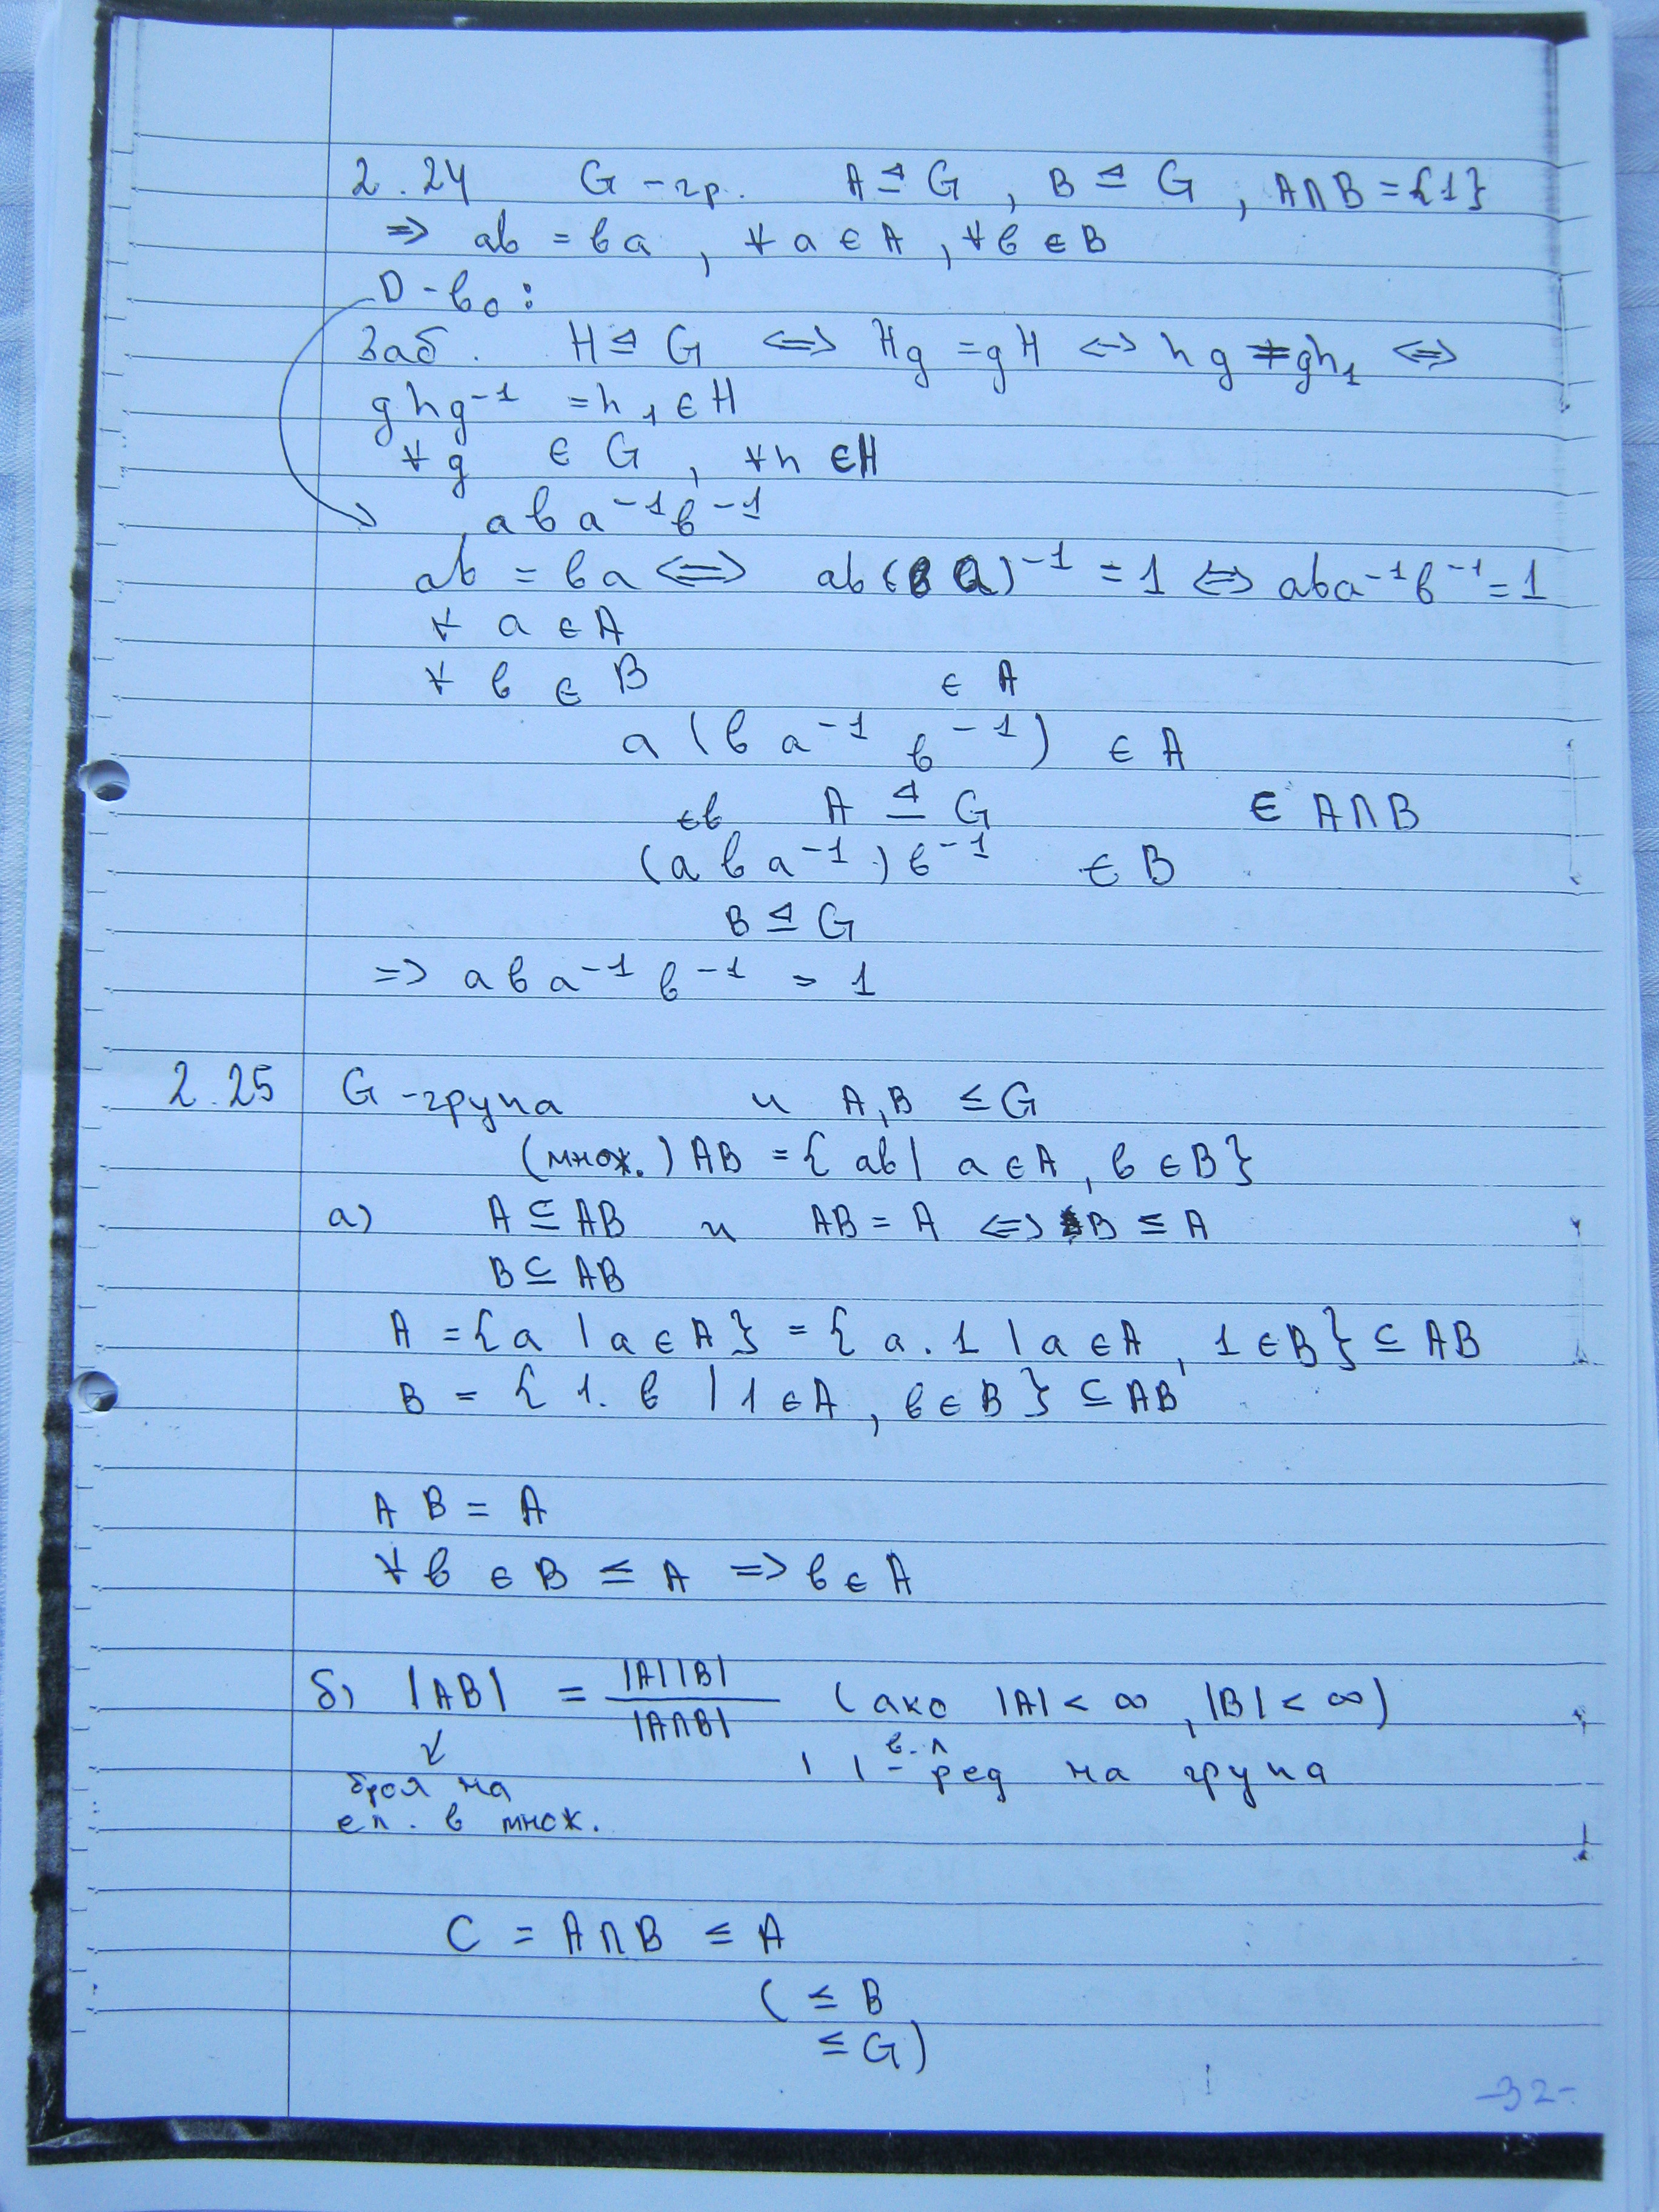 2.24 G-гр. A ⊴ G, B ⊴ G, A∩B={1}
=> ab = ba, ∀ a ∈ A, ∀ b ∈ B
D-во:
Заб. H ⊴ G <=> Hg = gH <=> hg = gh₁ <=>
ghg⁻¹ = h₁ ∈ H
∀ g ∈ G, ∀h ∈ H
a b a⁻¹ b⁻¹
ab = ba <=> ab(ba)⁻¹ = 1 <=> aba⁻¹b⁻¹ = 1
∀ a ∈ A
∀ b ∈ B ∈ A
a (b a⁻¹ b⁻¹) ∈ A
∈B A ⊴ G ∈ A∩B
(a b a⁻¹) b⁻¹ ∈ B
B ⊴ G
=> a b a⁻¹ b⁻¹ = 1
2.25 G-група и A,B ≤ G
(множ.) AB = { ab | a ∈ A, b ∈ B}
а) A ⊆ AB и AB = A <=> B ≤ A
B ⊆ AB
A = {a | a ∈ A} = { a . 1 | a ∈ A, 1 ∈ B} ⊆ AB
B = { 1. b | 1 ∈ A, b ∈ B } ⊆ AB
A B = A
∀ b ∈ B ≤ A => b ∈ A
б) |AB| = |A||B| / |A∩B| (ако |A| < ∞, |B| < ∞)
| | - ред на група
броя на
ел. в множ.
C = A∩B ≤ A
( ≤ B
≤ G)
-32-